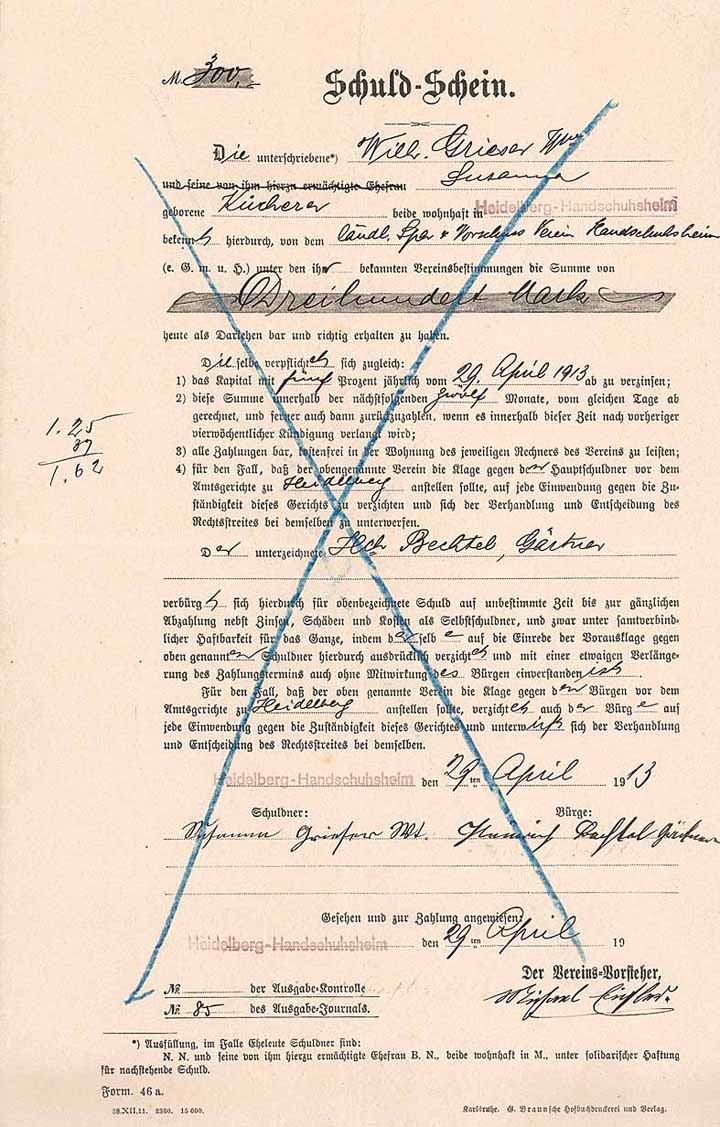 M. 300,
Schuld-Schein.
Die unterschriebene*) Wilh. Grieser Wwe
und seine von ihm hierzu ermächtigte Ehefrau Susanna
geborene Kücherer beide wohnhaft in Heidelberg-Handschuhsheim
bekennt hierdurch, von dem ländl. Spar & Vorschuss Verein Handschuhsheim
(e. G. m. u. H.) unter den ihr bekannten Vereinsbestimmungen die Summe von
Dreihundert Mark
heute als Darlehen bar und richtig erhalten zu haben.
Dieselbe verpflichtet sich zugleich:
1) das Kapital mit fünf Prozent jährlich vom 29. April 1913 ab zu verzinsen;
2) diese Summe innerhalb der nächstfolgenden zwölf Monate, vom gleichen Tage ab
gerechnet, und ferner auch dann zurückzuzahlen, wenn es innerhalb dieser Zeit nach vorheriger
vierwöchentlicher Kündigung verlangt wird;
1.25
37
1.62
3) alle Zahlungen bar, kostenfrei in der Wohnung des jeweiligen Rechners des Vereins zu leisten;
4) für den Fall, daß der obengenannte Verein die Klage gegen den Hauptschuldner vor dem
Amtsgerichte zu Heidelberg anstellen sollte, auf jede Einwendung gegen die Zu-
ständigkeit dieses Gerichts zu verzichten und sich der Verhandlung und Entscheidung des
Rechtsstreites bei demselben zu unterwerfen.
Der unterzeichnete Hch. Bechtel, Gärtner
verbürgt sich hierdurch für obenbezeichnete Schuld auf unbestimmte Zeit bis zur gänzlichen
Abzahlung nebst Zinsen, Schäden und Kosten als Selbstschuldner, und zwar unter samtverbind-
licher Haftbarkeit für das Ganze, indem derselbe auf die Einrede der Vorausklage gegen
oben genannten Schuldner hierdurch ausdrücklich verzichtet und mit einer etwaigen Verlänge-
rung des Zahlungstermins auch ohne Mitwirkung des Bürgen einverstanden ist.
Für den Fall, daß der oben genannte Verein die Klage gegen den Bürgen vor dem
Amtsgerichte zu Heidelberg anstellen sollte, verzichtet auch der Bürge auf
jede Einwendung gegen die Zuständigkeit dieses Gerichtes und unterwirft sich der Verhandlung
und Entscheidung des Rechtsstreites bei demselben.
Heidelberg-Handschuhsheim den 29ten April 1913
Schuldner: Bürge:
Susanna Grieser Wt. Heinrich Bechtel Gärtner
Gesehen und zur Zahlung angewiesen:
Heidelberg-Handschuhsheim den 29ten April 19
Der Vereins-Vorsteher,
Michael
No. der Ausgabe-Kontrolle
No. 85 des Ausgabe-Journals.
*) Ausfüllung, im Falle Eheleute Schuldner sind:
N. N. und seine von ihm hierzu ermächtigte Ehefrau B. N., beide wohnhaft in M., unter solidarischer Haftung
für nachstehende Schuld.
Form. 46 a.
28.XII.11. 2360. 15 000.
Karlsruhe. G. Braunsche Hofbuchdruckerei und Verlag.